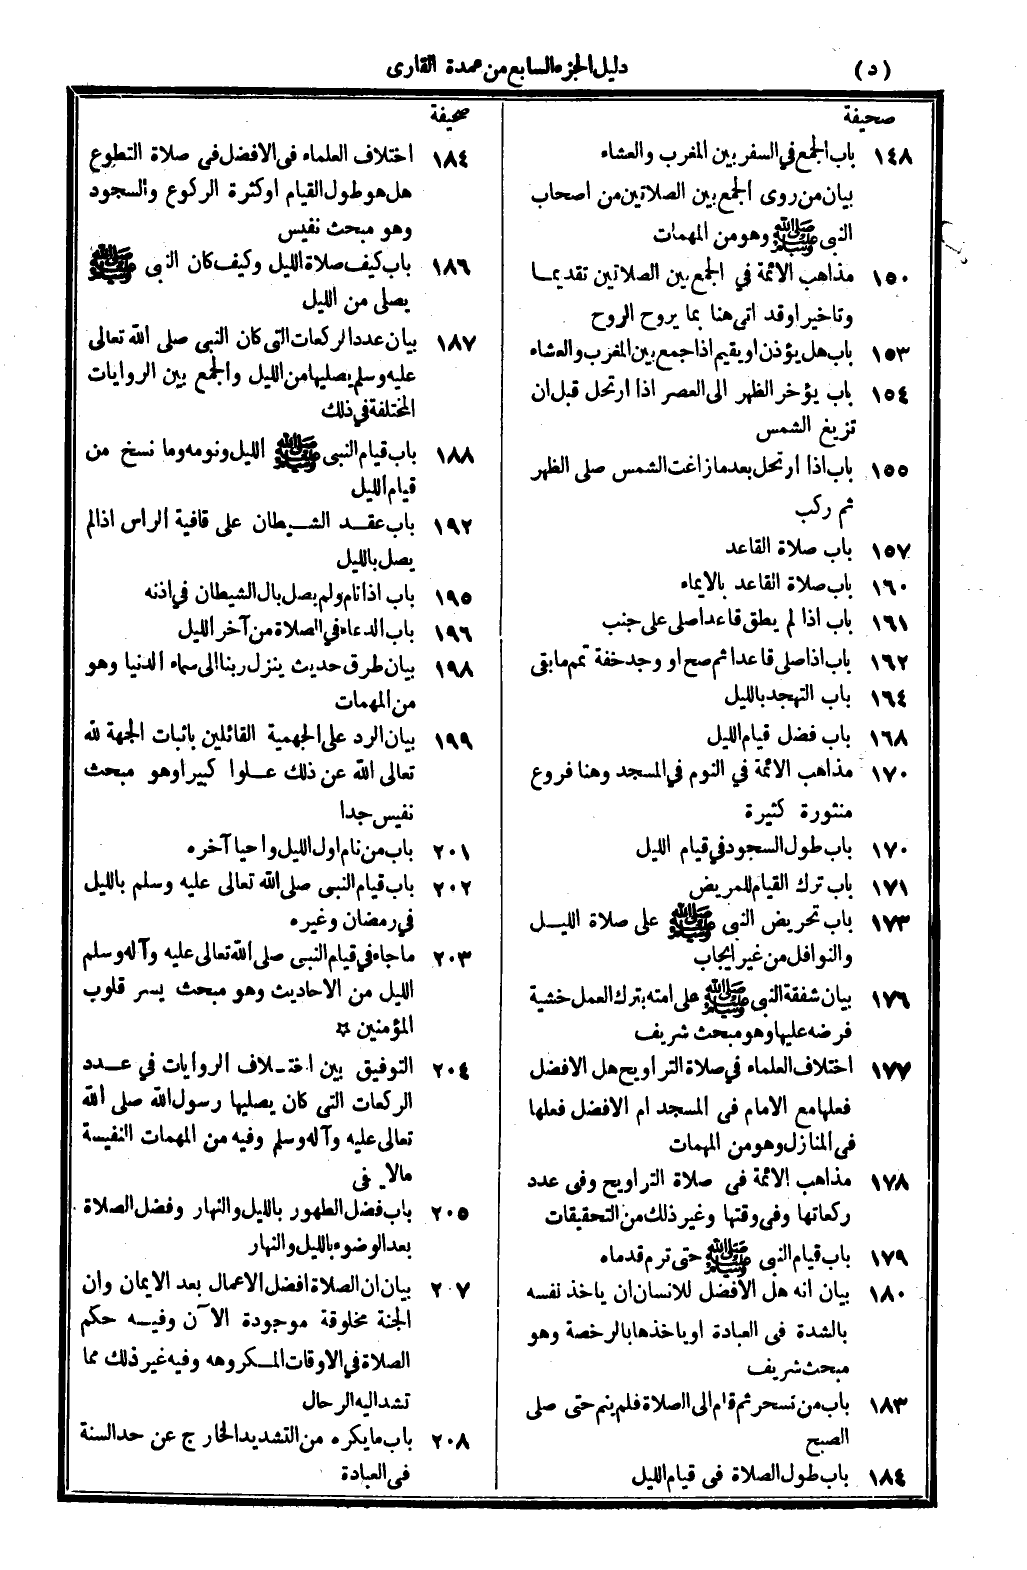 (د)
دليل الجزء السابع من عمدة القارى
صحيفة
١٤٨ باب الجمع في السفر بين المغرب والعشاء
بيان من روى الجمع بين الصلاتين من اصحاب
النبى ﷺ وهو من المهمات
١٥٠ مذاهب الائمة في الجمع بين الصلاتين تقديما
وتاخيرا وقد اتى هنا بما يروح الروح
١٥٣ باب هل يؤذن او يقيم اذا جمع بين المغرب والعشاء
١٥٤ باب يؤخر الظهر الى العصر اذا ارتحل قبل ان
تزيغ الشمس
١٥٥ باب اذا ارتحل بعد ما زاغت الشمس صلى الظهر
ثم ركب
١٥٧ باب صلاة القاعد
١٦٠ باب صلاة القاعد بالايماء
١٦١ باب اذا لم يطق قاعدا صلى على جنب
١٦٢ باب اذا صلى قاعدا ثم صح او وجد خفة تمم ما بقى
١٦٤ باب التهجد بالليل
١٦٨ باب فضل قيام الليل
١٧٠ مذاهب الائمة في النوم في المسجد وهنا فروع
منثورة كثيرة
١٧٠ باب طول السجود في قيام الليل
١٧١ باب ترك القيام للمريض
١٧٣ باب تحريض النبى ﷺ على صلاة الليل
والنوافل من غير ايجاب
١٧٦ بيان شفقة النبى ﷺ على امته بترك العمل خشية
فرضه عليها وهو مبحث شريف
١٧٧ اختلاف العلماء في صلاة التراويح هل الافضل
فعلها مع الامام فى المسجد ام الافضل فعلها
فى المنازل وهو من المهمات
١٧٨ مذاهب الائمة فى صلاة التراويح وفى عدد
ركعاتها وفى وقتها وغير ذلك من التحقيقات
١٧٩ باب قيام النبى ﷺ حتى ترم قدماه
١٨٠ بيان انه هل الافضل للانسان ان ياخذ نفسه
بالشدة فى العبادة او ياخذها بالرخصة وهو
مبحث شريف
١٨٣ باب من تسحر ثم قام الى الصلاة فلم ينم حتى صلى
الصبح
١٨٤ باب طول الصلاة فى قيام الليل
صحيفة
١٨٤ اختلاف العلماء فى الافضل فى صلاة التطوع
هل هو طول القيام او كثرة الركوع والسجود
وهو مبحث نفيس
١٨٦ باب كيف صلاة الليل وكيف كان النبى ﷺ
يصلى من الليل
١٨٧ بيان عدد الركعات التى كان النبى صلى الله تعالى
عليه وسلم يصليها من الليل والجمع بين الروايات
المختلفة في ذلك
١٨٨ باب قيام النبى ﷺ الليل ونومه وما نسخ من
قيام الليل
١٩٢ باب عقد الشيطان على قافية الراس اذا لم
يصل بالليل
١٩٥ باب اذا نام ولم يصل بال الشيطان في اذنه
١٩٦ باب الدعاء في الصلاة من آخر الليل
١٩٨ بيان طرق حديث ينزل ربنا الى سماء الدنيا وهو
من المهمات
١٩٩ بيان الرد على الجهمية القائلين باثبات الجهة لله
تعالى الله عن ذلك علوا كبيرا وهو مبحث
نفيس جدا
٢٠١ باب من نام اول الليل واحيا آخره
٢٠٢ باب قيام النبى صلى الله تعالى عليه وسلم بالليل
في رمضان وغيره
٢٠٣ ما جاء في قيام النبى صلى الله تعالى عليه وآله وسلم
الليل من الاحاديث وهو مبحث يسر قلوب
المؤمنين ✡
٢٠٤ التوفيق بين اختلاف الروايات في عدد
الركعات التى كان يصليها رسول الله صلى الله
تعالى عليه وآله وسلم وفيه من المهمات النفيسة
مالا
٢٠٥ باب فضل الطهور بالليل والنهار وفضل الصلاة
بعد الوضوء بالليل والنهار
٢٠٧ بيان ان الصلاة افضل الاعمال بعد الايمان وان
الجنة مخلوقة موجودة الآن وفيه حكم
الصلاة في الاوقات المكروهه وفيه غير ذلك مما
تشد اليه الرحال
٢٠٨ باب ما يكره من التشديد الخارج عن حد السنة
فى العبادة